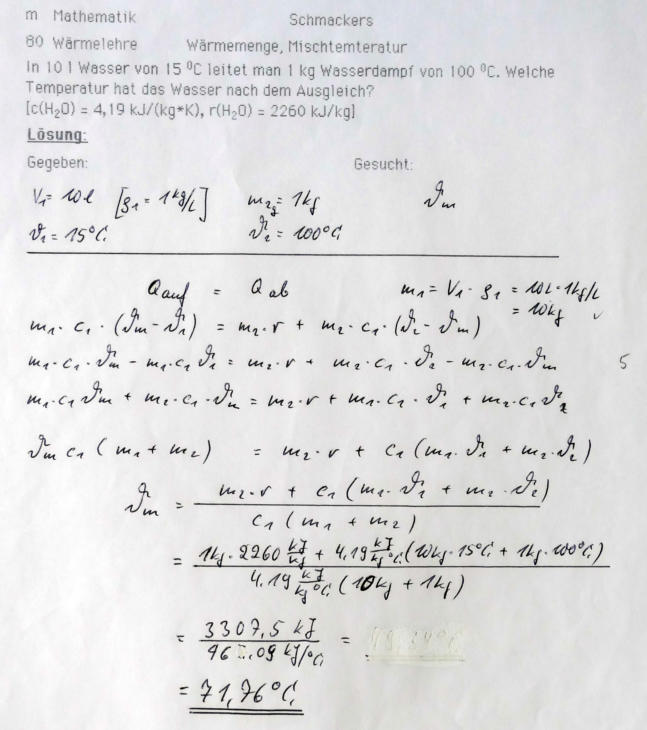 m Mathematik Schmackers
80 Wärmelehre Wärmemenge, Mischtemteratur
In 10 l Wasser von 15 °C leitet man 1 kg Wasserdampf von 100 °C. Welche
Temperatur hat das Wasser nach dem Ausgleich?
[c(H₂O) = 4,19 kJ/(kg*K), r(H₂O) = 2260 kJ/kg]
Lösung:
Gegeben: Gesucht:
V₁ = 10 l [ϱ₁ = 1 kg/L] m₂g = 1kg ϑm
ϑ₁ = 15°C ϑ₂ = 100°C
Q auf = Q ab m₁ = V₁ · ϱ₁ = 10L · 1kg/L
= 10kg ✓
m₁ · c₁ · (ϑm - ϑ₁) = m₂ · r + m₂ · c₁ · (ϑ₂ - ϑm)
m₁ · c₁ · ϑm - m₁ · c₁ ϑ₁ = m₂ · r + m₂ · c₁ · ϑ₂ - m₂ · c₁ · ϑm 5
m₁ · c₁ ϑm + m₂ · c₁ · ϑm = m₂ · r + m₁ · c₁ · ϑ₁ + m₂ · c₁ ϑ₂
ϑm c₁ (m₁ + m₂) = m₂ · r + c₁ (m₁ · ϑ₁ + m₂ · ϑ₂)
ϑm = m₂ · r + c₁ (m₁ · ϑ₁ + m₂ · ϑ₂)
c₁ (m₁ + m₂)
= 1kg · 2260 kJ/kg + 4.19 kJ/kg°C (10kg · 15°C + 1kg · 100°C)
4.19 kJ/kg°C (10kg + 1kg)
= 3307,5 kJ =
46,09 kJ/°C
= 71,76°C